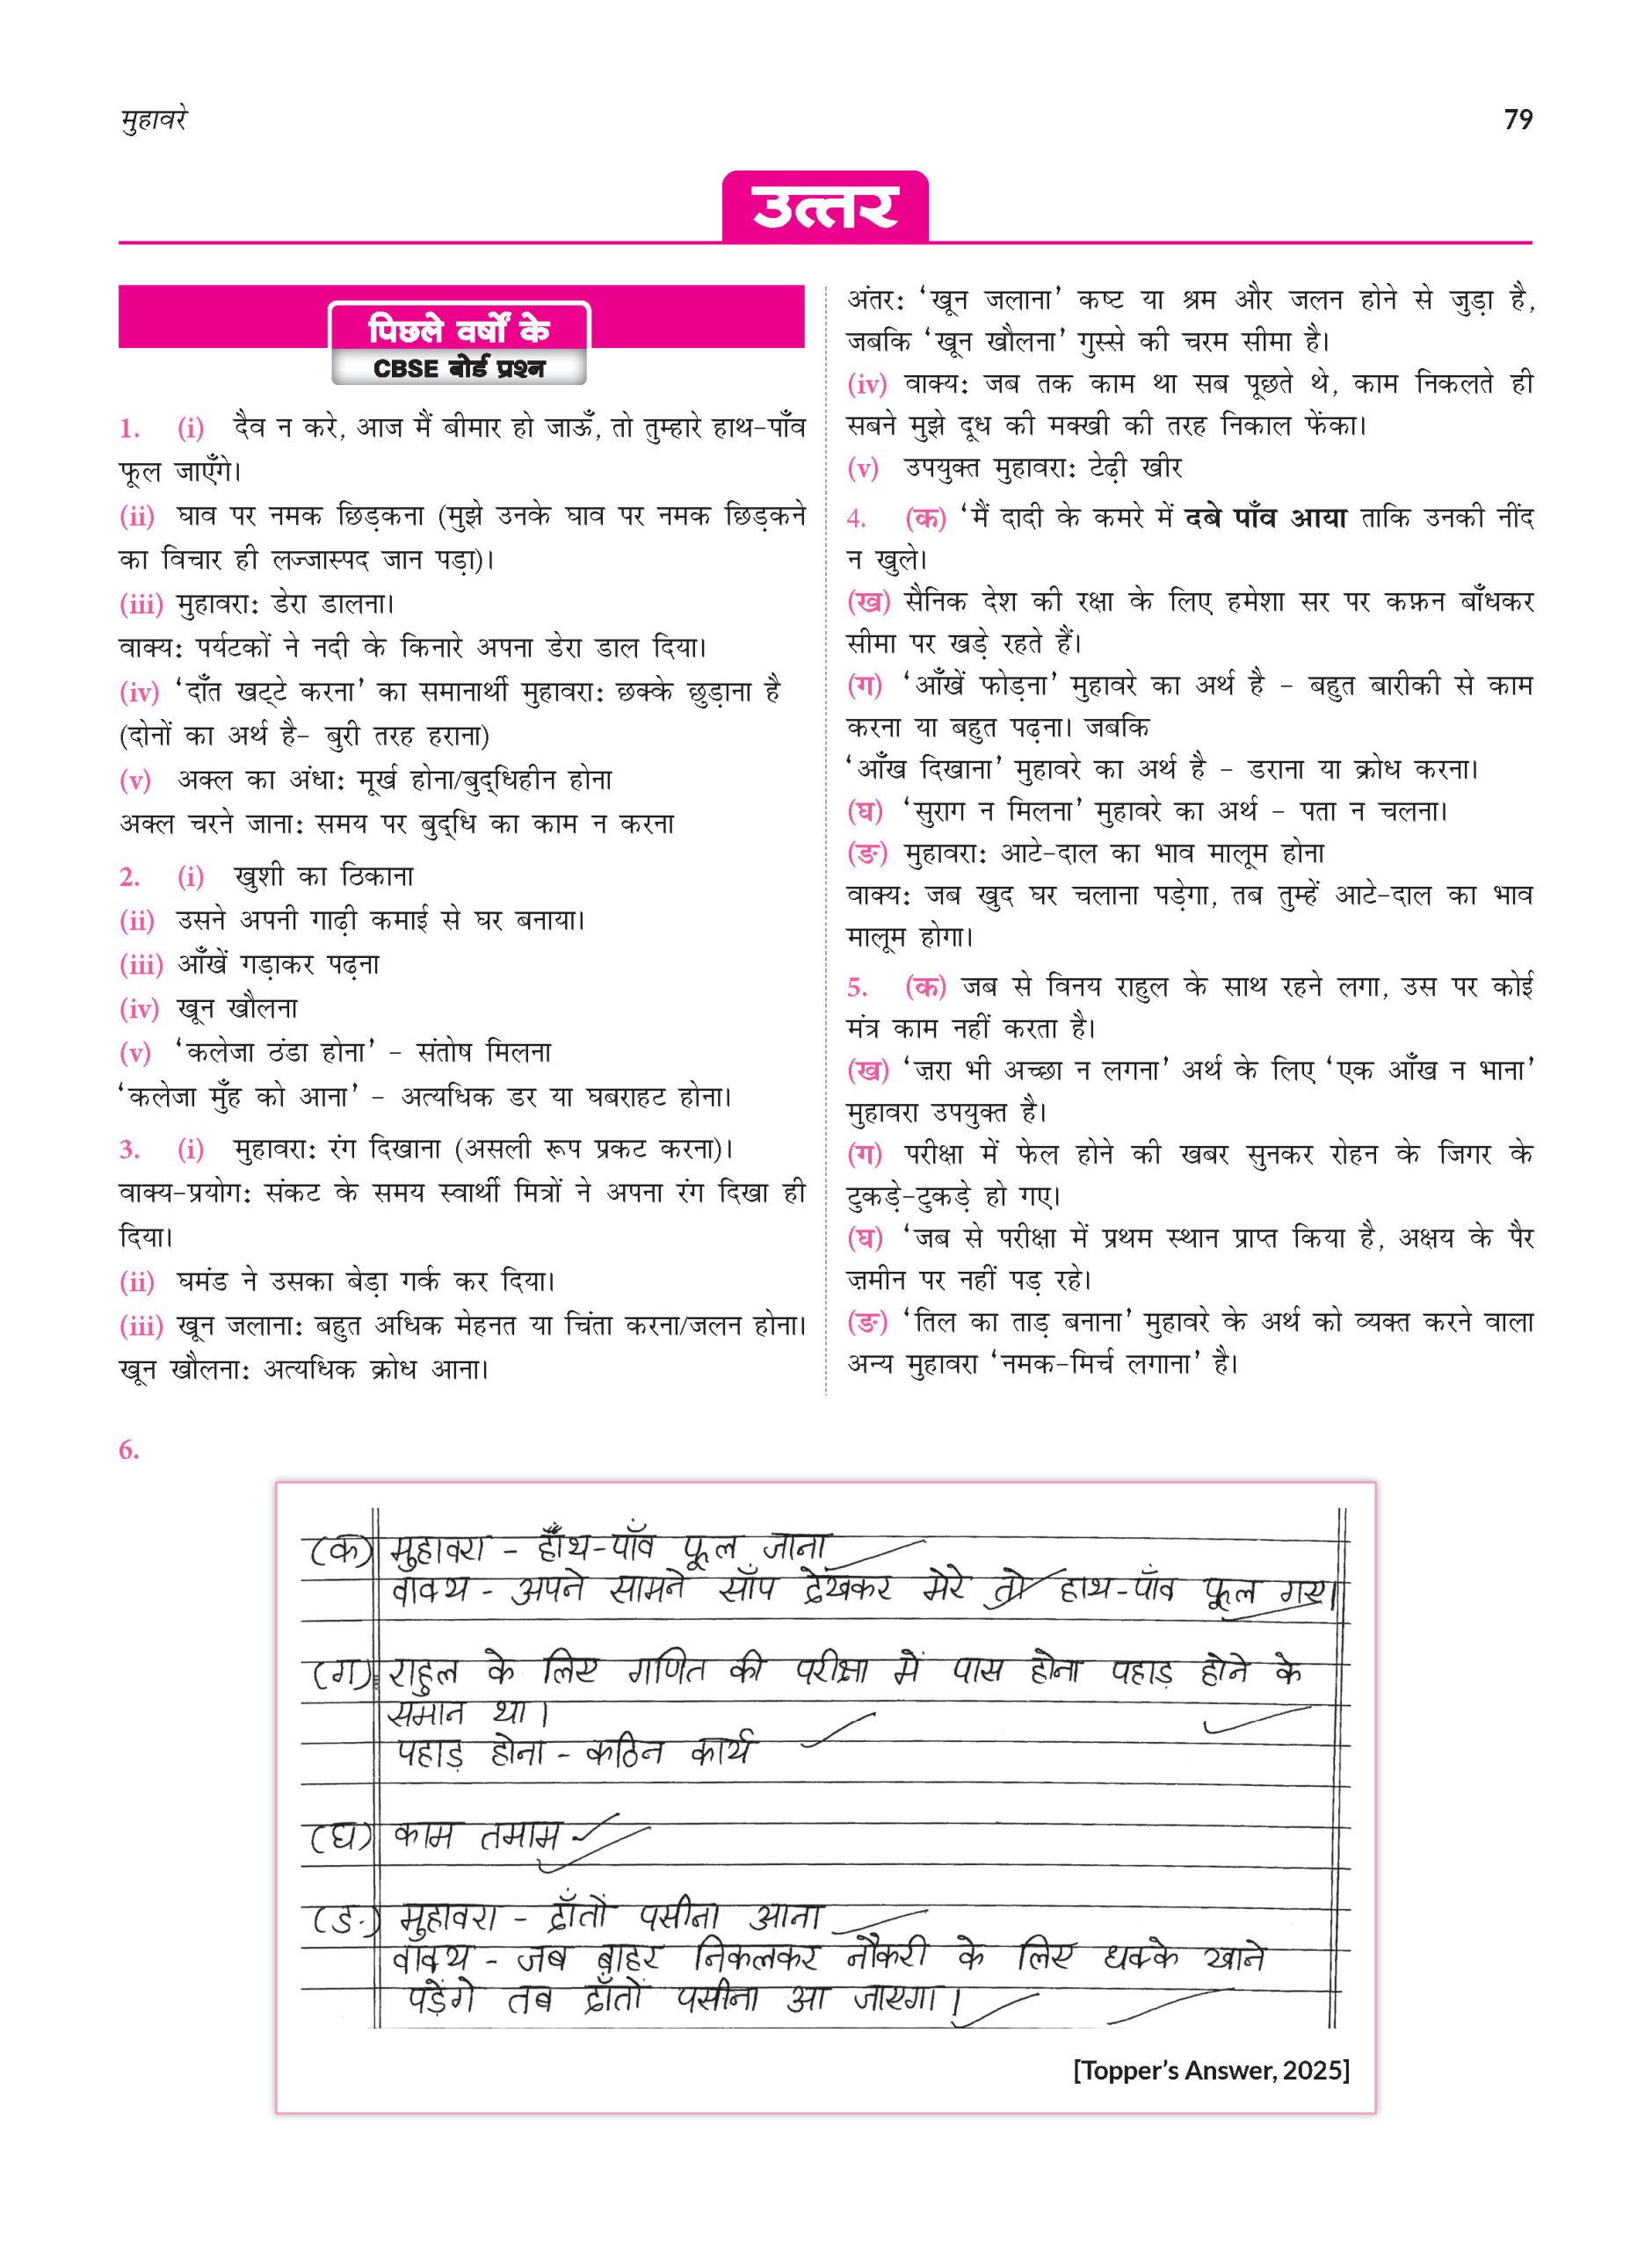 मुहावरे
79
उत्तर
पिछले वर्षों के
CBSE बोर्ड प्रश्न
1. (i) दैव न करे, आज मैं बीमार हो जाऊँ, तो तुम्हारे हाथ-पाँव
फूल जाएँगे।
(ii) घाव पर नमक छिड़कना (मुझे उनके घाव पर नमक छिड़कने
का विचार ही लज्जास्पद जान पड़ा)।
(iii) मुहावरा: डेरा डालना।
वाक्य: पर्यटकों ने नदी के किनारे अपना डेरा डाल दिया।
(iv) ‘दाँत खट्टे करना’ का समानार्थी मुहावरा: छक्के छुड़ाना है
(दोनों का अर्थ है- बुरी तरह हराना)
(v) अक्ल का अंधा: मूर्ख होना/बुद्धिहीन होना
अक्ल चरने जाना: समय पर बुद्धि का काम न करना
2. (i) खुशी का ठिकाना
(ii) उसने अपनी गाढ़ी कमाई से घर बनाया।
(iii) आँखें गड़ाकर पढ़ना
(iv) खून खौलना
(v) ‘कलेजा ठंडा होना’ – संतोष मिलना
‘कलेजा मुँह को आना’ – अत्यधिक डर या घबराहट होना।
3. (i) मुहावरा: रंग दिखाना (असली रूप प्रकट करना)।
वाक्य-प्रयोग: संकट के समय स्वार्थी मित्रों ने अपना रंग दिखा ही
दिया।
(ii) घमंड ने उसका बेड़ा गर्क कर दिया।
(iii) खून जलाना: बहुत अधिक मेहनत या चिंता करना/जलन होना।
खून खौलना: अत्यधिक क्रोध आना।
अंतर: ‘खून जलाना’ कष्ट या श्रम और जलन होने से जुड़ा है,
जबकि ‘खून खौलना’ गुस्से की चरम सीमा है।
(iv) वाक्य: जब तक काम था सब पूछते थे, काम निकलते ही
सबने मुझे दूध की मक्खी की तरह निकाल फेंका।
(v) उपयुक्त मुहावरा: टेढ़ी खीर
4. (क) ‘मैं दादी के कमरे में दबे पाँव आया ताकि उनकी नींद
न खुले।
(ख) सैनिक देश की रक्षा के लिए हमेशा सर पर कफ़न बाँधकर
सीमा पर खड़े रहते हैं।
(ग) ‘आँखें फोड़ना’ मुहावरे का अर्थ है – बहुत बारीकी से काम
करना या बहुत पढ़ना। जबकि
‘आँख दिखाना’ मुहावरे का अर्थ है – डराना या क्रोध करना।
(घ) ‘सुराग न मिलना’ मुहावरे का अर्थ – पता न चलना।
(ङ) मुहावरा: आटे-दाल का भाव मालूम होना
वाक्य: जब खुद घर चलाना पड़ेगा, तब तुम्हें आटे-दाल का भाव
मालूम होगा।
5. (क) जब से विनय राहुल के साथ रहने लगा, उस पर कोई
मंत्र काम नहीं करता है।
(ख) ‘ज़रा भी अच्छा न लगना’ अर्थ के लिए ‘एक आँख न भाना’
मुहावरा उपयुक्त है।
(ग) परीक्षा में फेल होने की खबर सुनकर रोहन के जिगर के
टुकड़े-टुकड़े हो गए।
(घ) ‘जब से परीक्षा में प्रथम स्थान प्राप्त किया है, अक्षय के पैर
ज़मीन पर नहीं पड़ रहे।
(ङ) ‘तिल का ताड़ बनाना’ मुहावरे के अर्थ को व्यक्त करने वाला
अन्य मुहावरा ‘नमक-मिर्च लगाना’ है।
6.
(क) मुहावरा – हाँथ-पाँव फूल जाना
वाक्य - अपने सामने साँप देखकर मेरे तो हाथ-पाँव फूल गए।
(ग) राहुल के लिए गणित की परीक्षा में पास होना पहाड़ होने के
समान था।
पहाड़ होना - कठिन कार्य
(घ) काम तमाम
(ङ) मुहावरा - दाँतों पसीना आना
वाक्य - जब बाहर निकलकर नौकरी के लिए धक्के खाने
पड़ेंगे तब दाँतों पसीना आ जाएगा।
[Topper’s Answer, 2025]